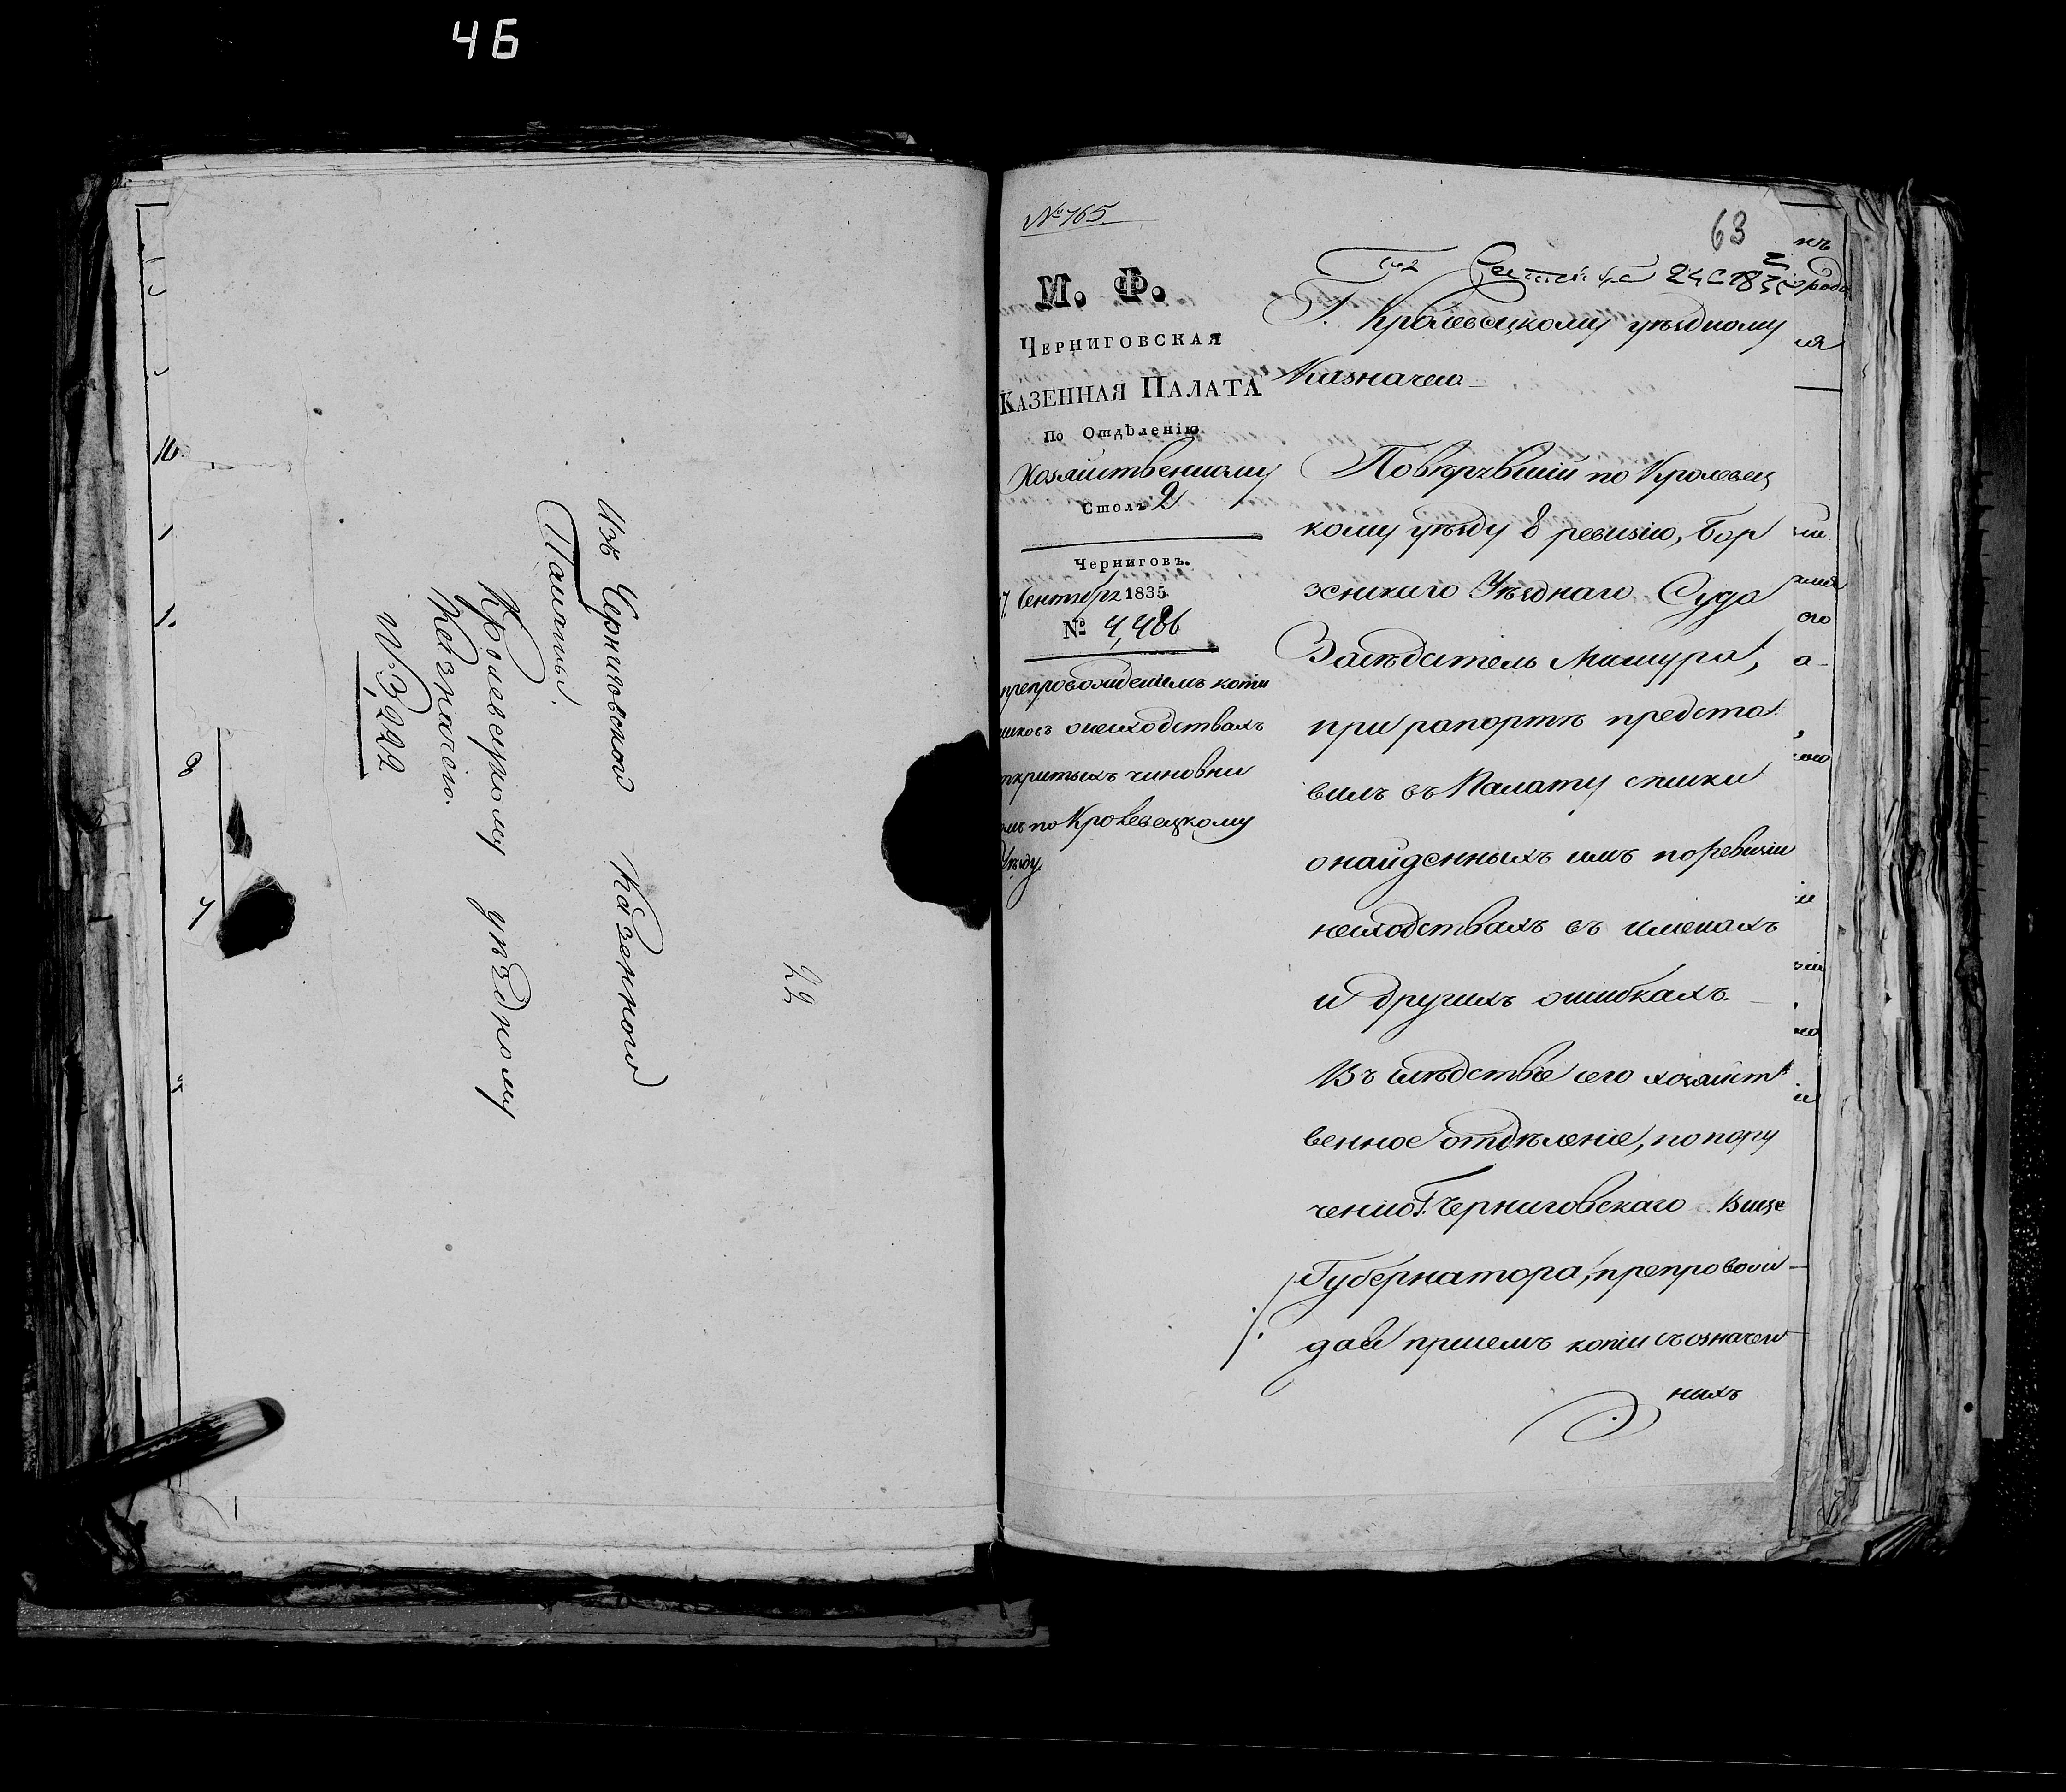 46
Изъ Черниговской Казенной
Палаты.
Кролевецкому уѣздному
Казначею.
№ 3,222
22
№ 765
63
М. Ф.
Черниговская
Казенная Палата
По Отдѣленію
Хозяйственному
Столъ 2
Черниговъ.
7. Сентября 1835.
№ 4,486
препровожденіемъ копіи
онесходствахъ
открытыхъ чиновни
по Кролевецкому
Уѣзду
Сентября 24 1835
Г. Кролевецкому уѣздному
Казначею
Повѣрявшій по Кролевец
кому уѣзду 8 ревизію, Бор
зенскаго Уѣзднаго Суда
Засѣдатель Мишура,
при рапортѣ предста
вилъ въ Палату списки
онайденныхъ имъ поревизіи
несходствахъ въ именахъ
и другихъ ошибкахъ.
Въ слѣдствіе сего хозяйст
венное отдѣленіе, попору
ченію Г. Черниговскаго Вице
Губернатора, препровож
дая присемъ копіи съозначен
ныхъ